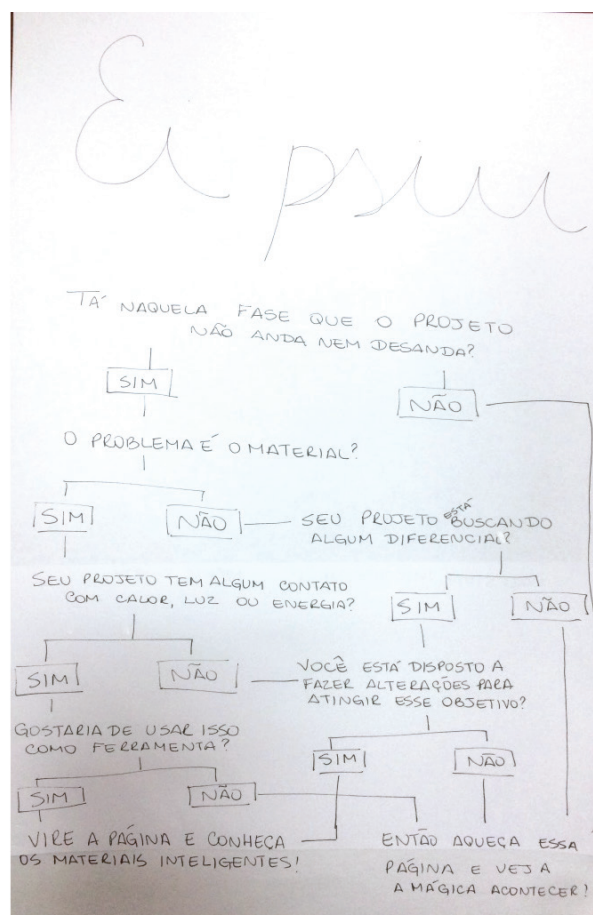 Ei psiu
TÁ NAQUELA FASE QUE O PROJETO
NÃO ANDA NEM DESANDA?
SIM
NÃO
O PROBLEMA É O MATERIAL?
SIM
NÃO
SEU PROJETO ESTÁ BUSCANDO
ALGUM DIFERENCIAL?
SEU PROJETO TEM ALGUM CONTATO
COM CALOR, LUZ OU ENERGIA?
SIM
NÃO
SIM
NÃO
VOCÊ ESTÁ DISPOSTO A
FAZER ALTERAÇÕES PARA
ATINGIR ESSE OBJETIVO?
GOSTARIA DE USAR ISSO
COMO FERRAMENTA?
SIM
NÃO
SIM
NÃO
VIRE A PÁGINA E CONHEÇA
OS MATERIAIS INTELIGENTES!
ENTÃO AQUEÇA ESSA
PÁGINA E VEJA
A MÁGICA ACONTECER!